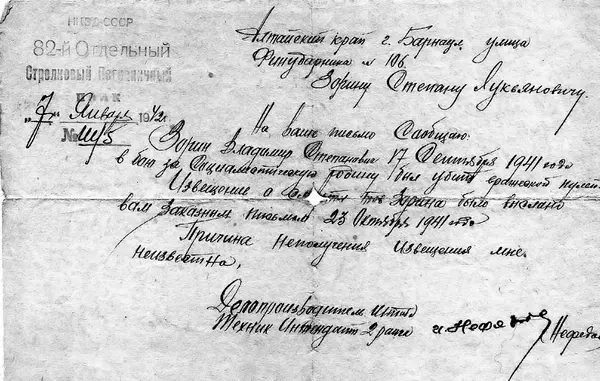 НКВД-СССР
82-й Отдельный
Стрелковый Пограничный
полк
"7" Января 1942г.
№
Алтайский край г. Барнаул улица
№ 106
Зорину Степану Лукьяновичу.
На ваше письмо Сообщаю:
Зорин Владимир Степанович 17 Сентября 1941 года
в бою за Социалистическую родину был убит вражеской пулей.
Извещение о тов Зорина было выслано
вам Заказным письмом 23 Октября 1941 года
Причина неполучения извещения мне
неизвестна.
Делопроизводитель штаба
Техник Интендант 2 ранга